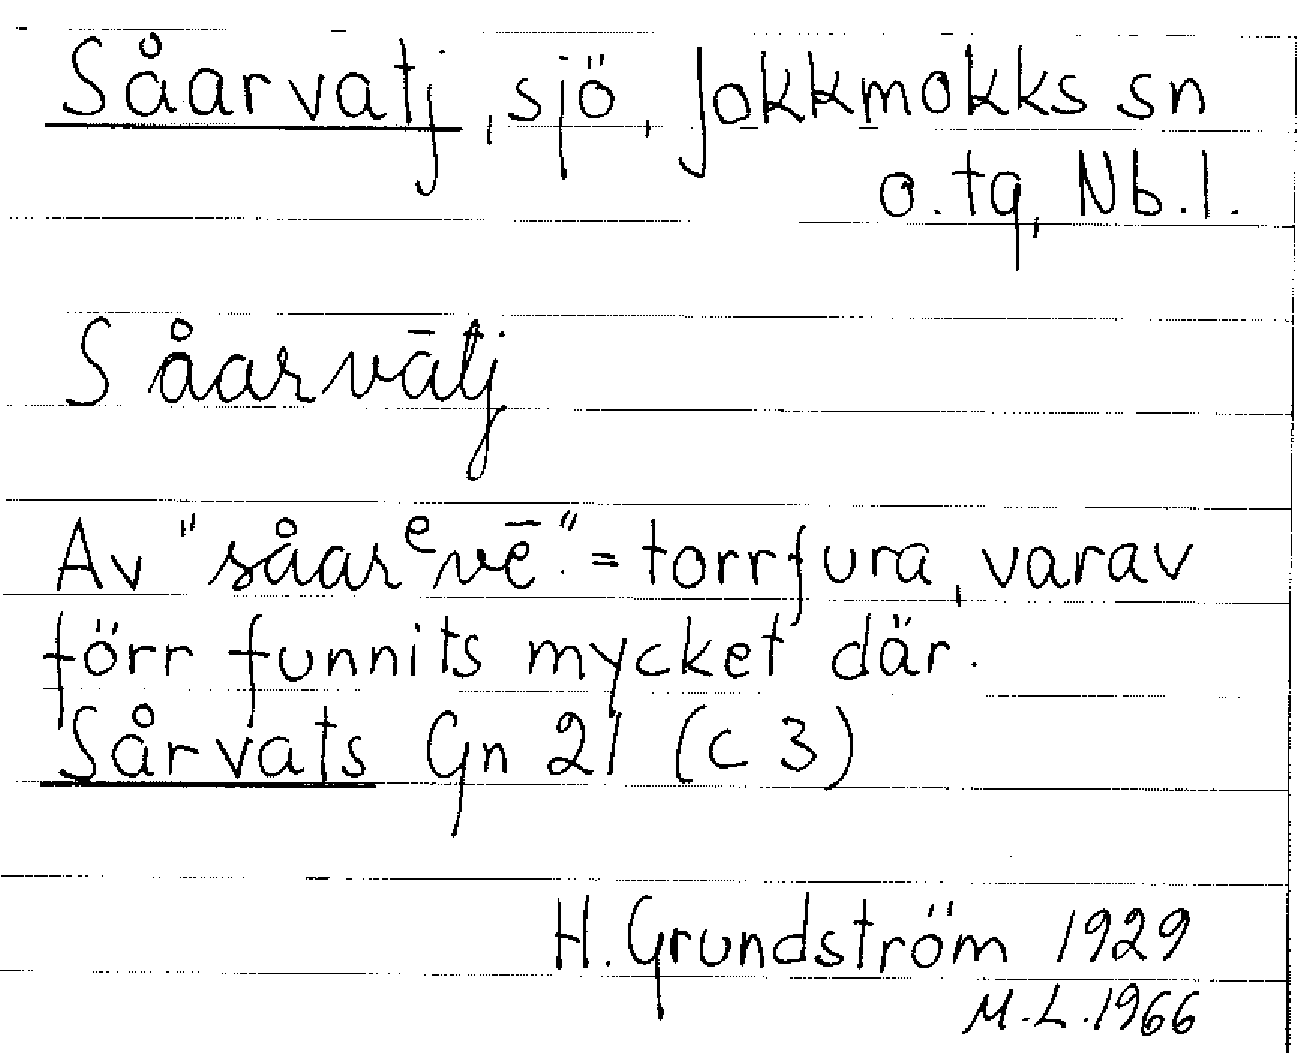 Såarvatj, sjö, Jokkmokks sn
o. tg, Nb.l.
Såarvātj
Av "såarᵉvē." = torrfura, varav
förr funnits mycket där.
Sårvats Gn 21 (C 3)
H. Grundström 1929
M.L. 1966